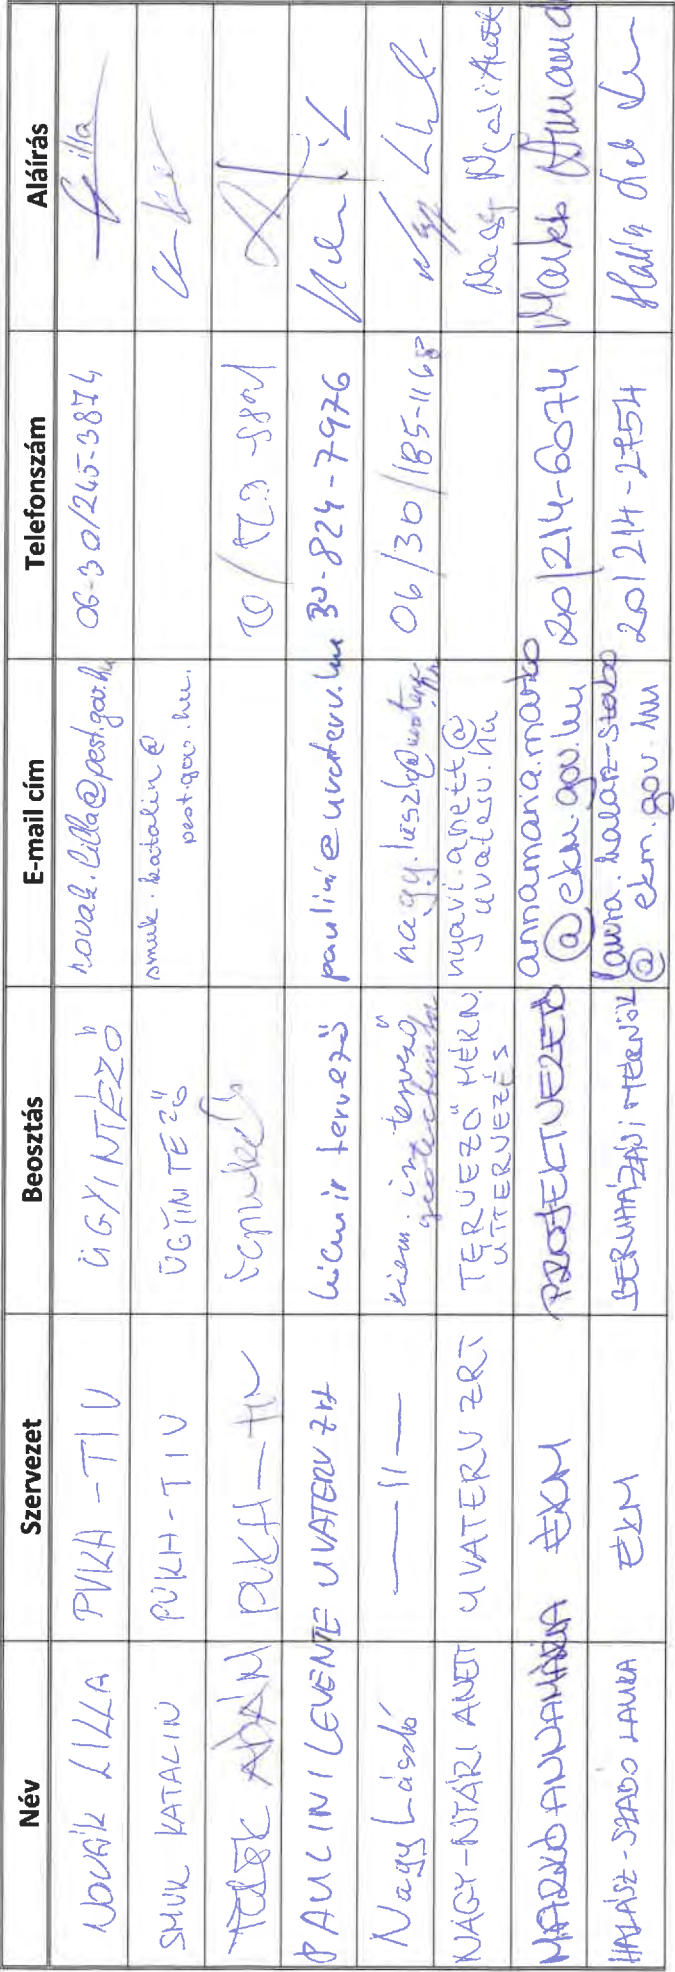 Név Szervezet Beosztás E-mail cím Telefonszám Aláírás
NOVÁK LILLA PVKH-TIV ÜGYINTÉZŐ novak.lilla@pest.gov.hu 06-30/245-3874
SMUK KATALIN PVKH-TIV ÜGYINTÉZŐ smuk.katalin@
pest.gov.hu.
ÁDÁM PVKH-TIV
PAULINI LEVENTE UVATERV ZRt tervező paulini@uvaterv.hu 30-824-7976
Nagy László —11— kiem. ir. tervező
geotechnika 06/30/185-1168
NAGY-NYÁRI ANETT UVATERV ZRT TERVEZŐ MÉRN.
ÚTTERVEZÉS nyari.anett@
uvaterv.hu
MARKÓ ANNAMÁRIA EKM PROJEKTVEZETŐ annamaria.marko
@ekm.gov.hu 20/214-6074 Markó Annamária
HALÁSZ-SZABÓ LAURA EKM BERUHÁZÁSI MÉRNÖK laura.halasz-szabo
@ekm.gov.hu 20/214-2754